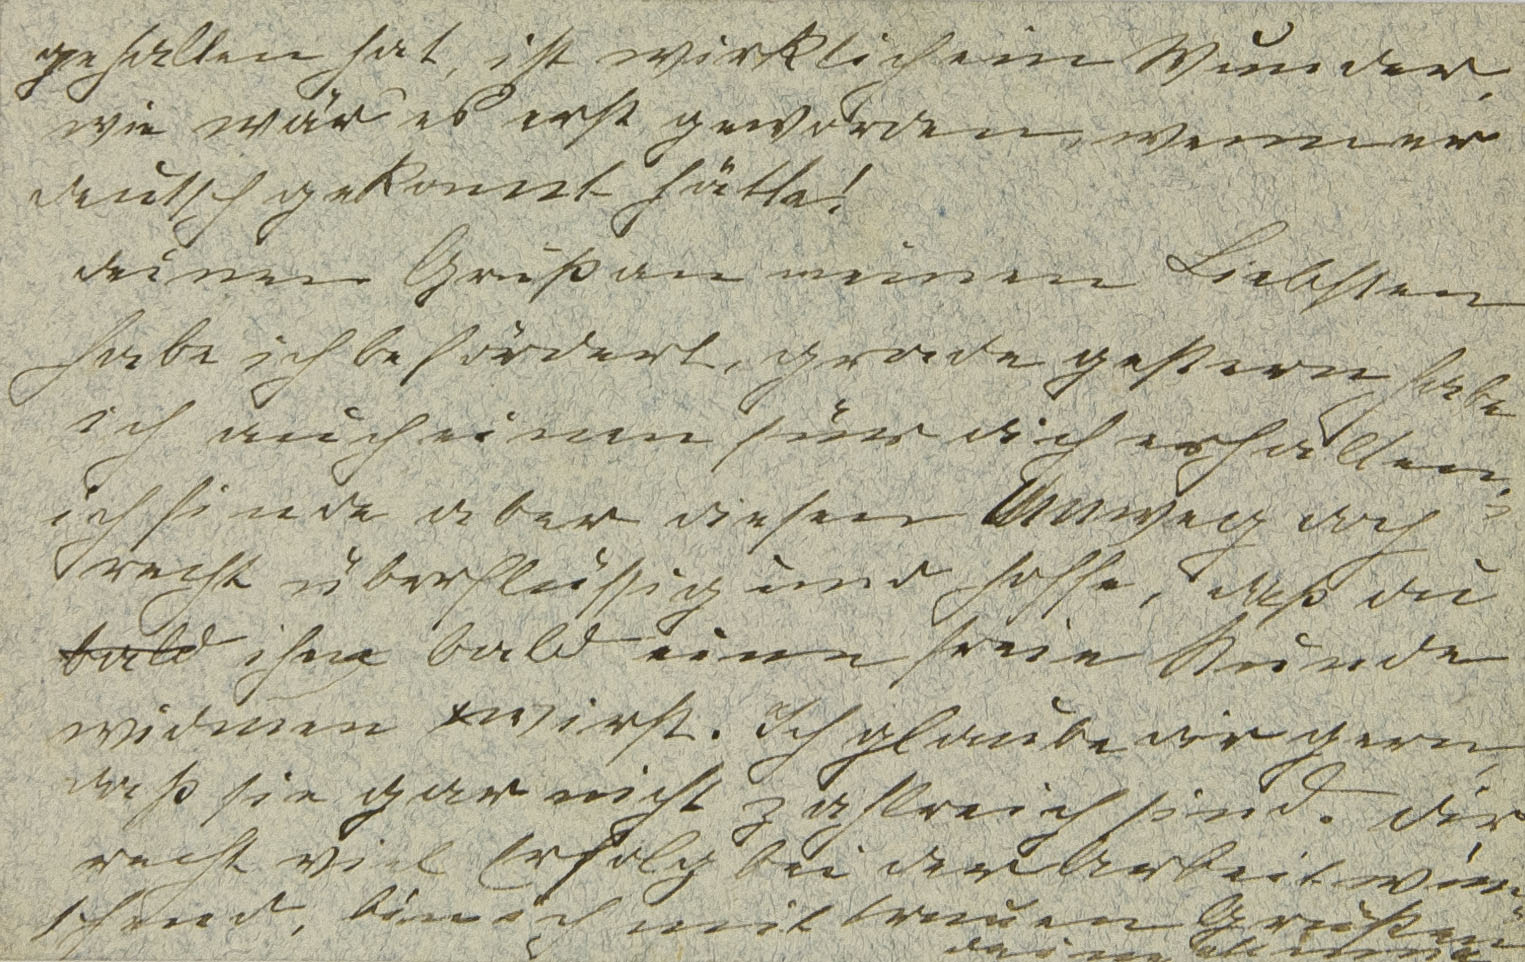 gehalten hat, ist wirklich ein Wunder,
wie wär es erst geworden, wenn er
deutsch gekonnt hätte!
deinen Gruß an meinen Liebsten
habe ich befördert, grade gestern habe
ich auch einen für dich erhalten,
ich finde aber diesen Umweg doch
recht überflüssig und hoffe, daß du
bald ihm bald eine freie Stunde
widmen wirst. Ich glaube dir gern,
daß sie gar nicht zahlreich sind. Dir
recht viel Erfolg bei der Arbeit wün-
schend, bin ich mit treuen Grüßen
deine